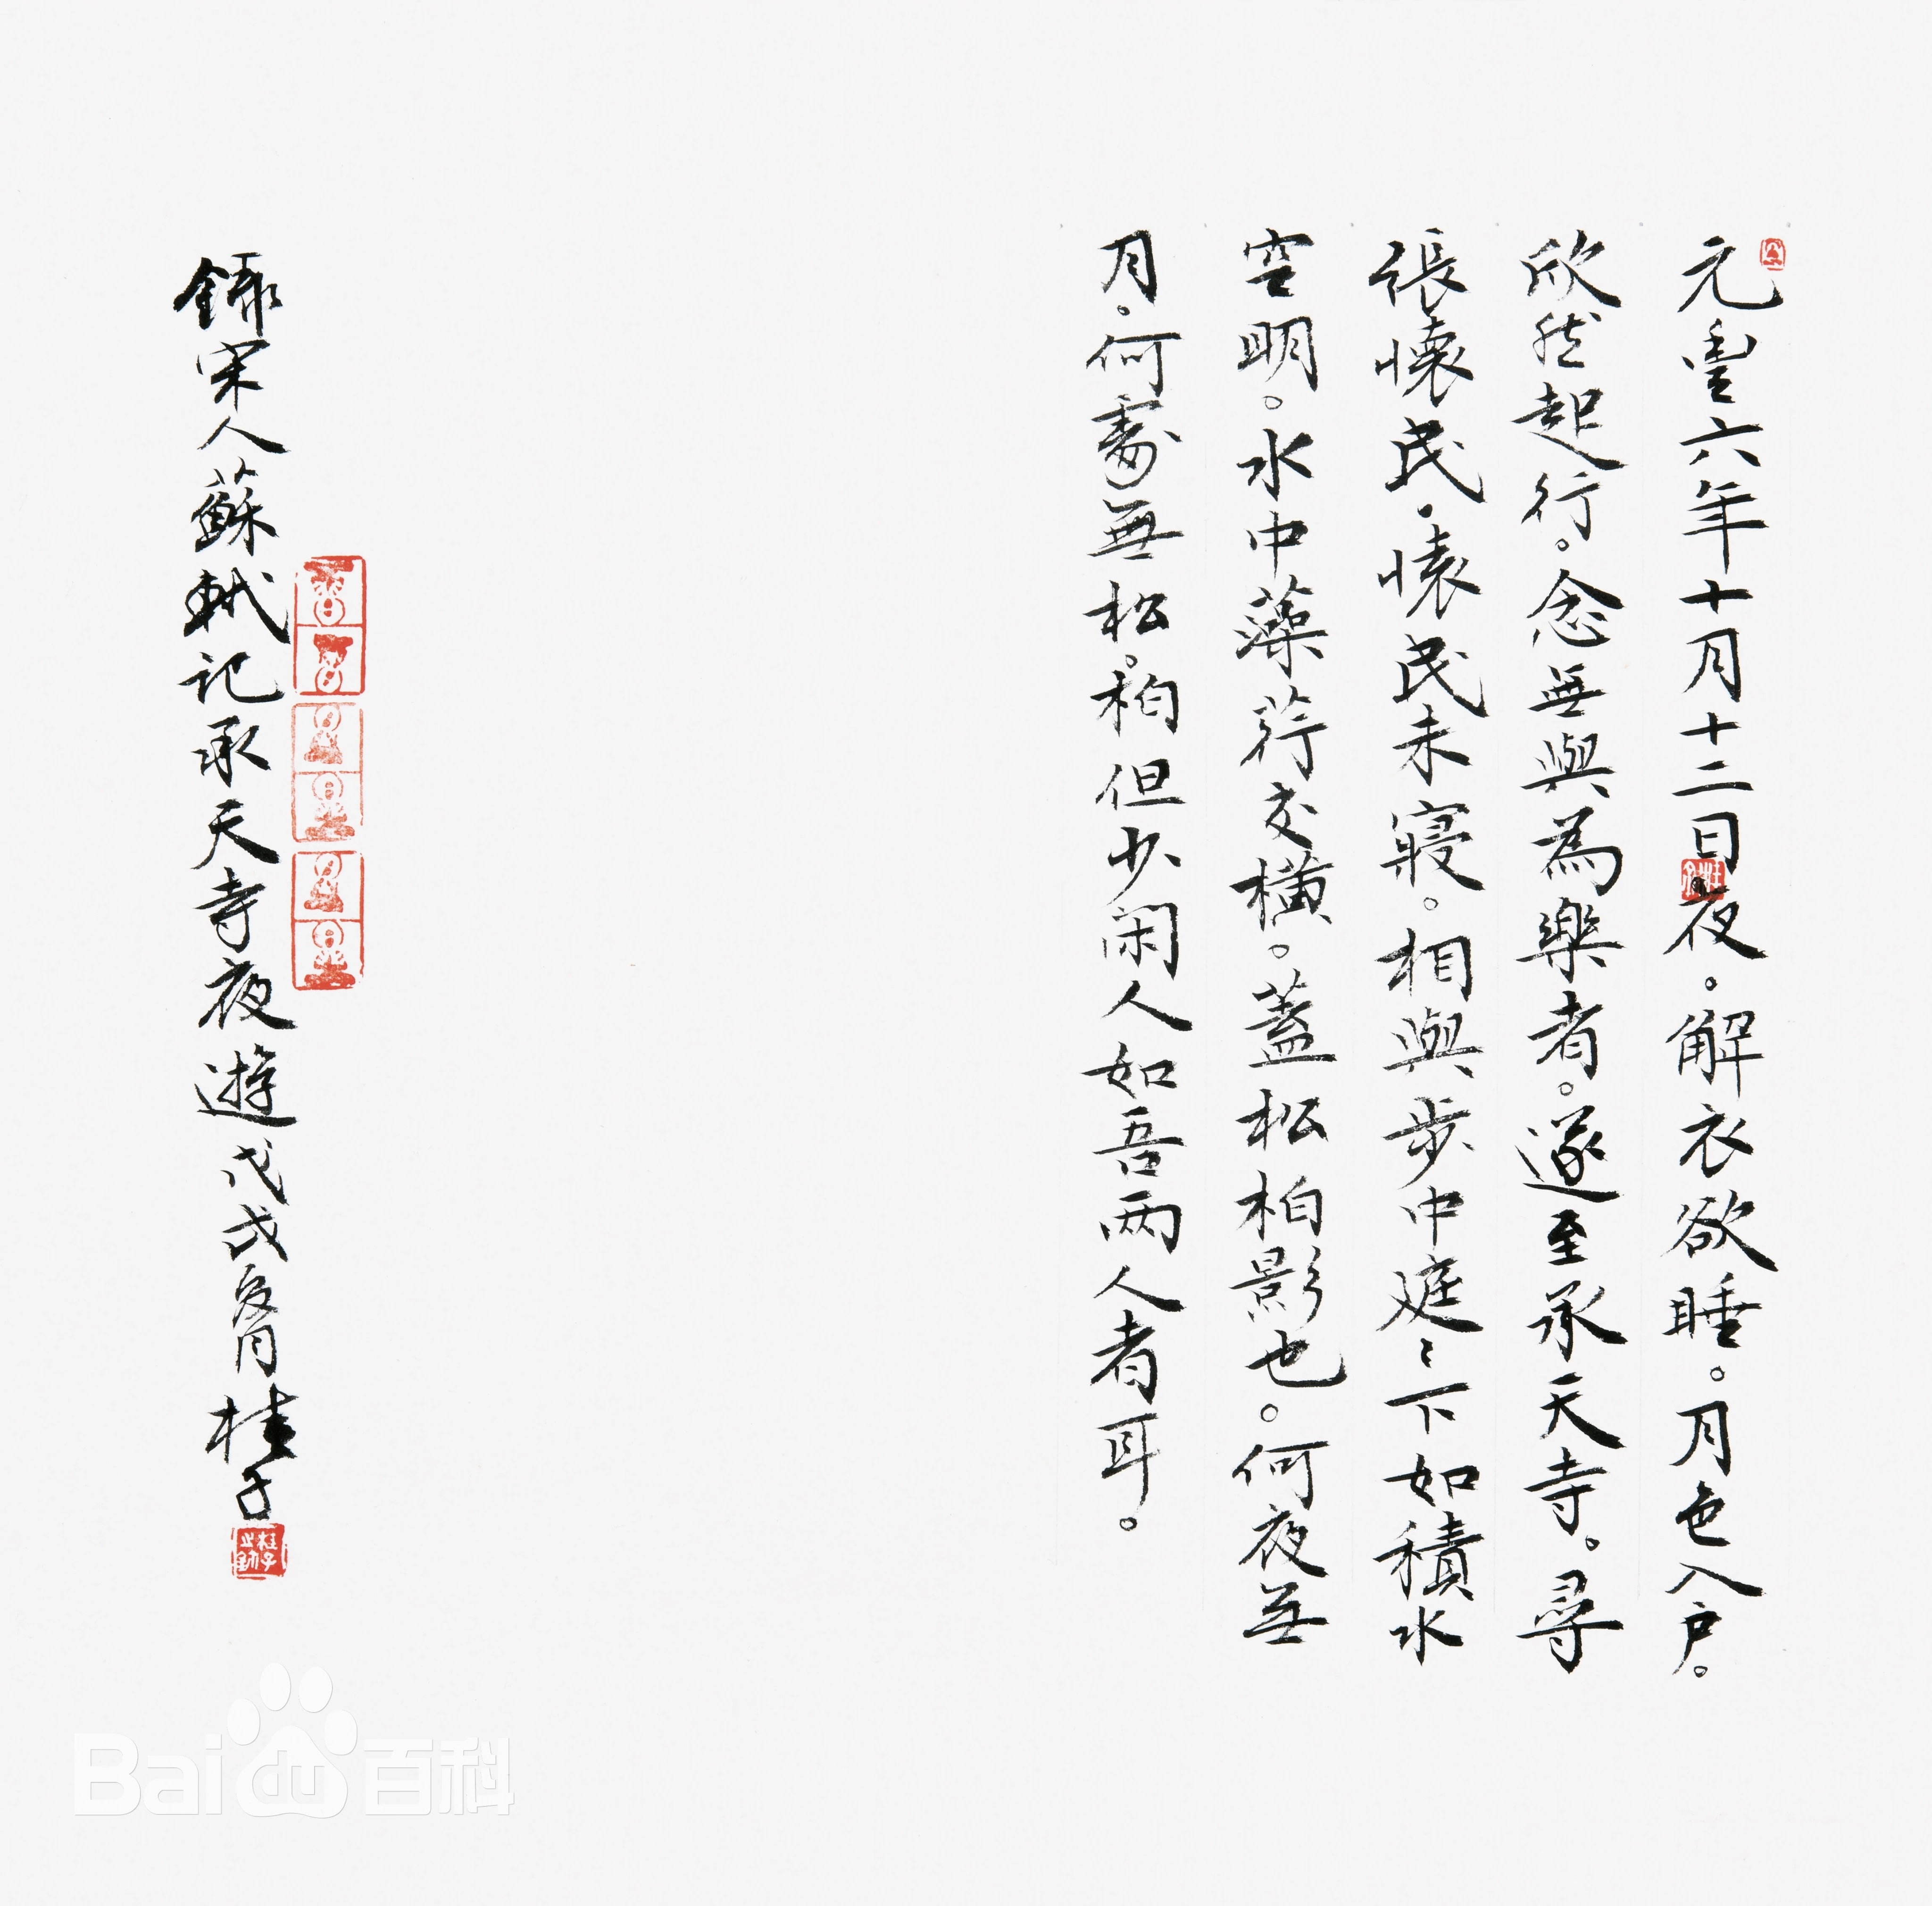 元豐六年十月十二日夜。解衣欲睡。月色入户。
欣然起行。念無與為樂者。遂至承天寺。尋
張懷民。懷民未寢。相與步中庭〻下如積水
空明。水中藻荇交橫。蓋松柏影也。何夜無
月。何處無松。柏但少闲人如吾兩人者耳。
錄宋人蘇軾記承天寺夜遊 戊戌夏月 桂子
Bai du 百科